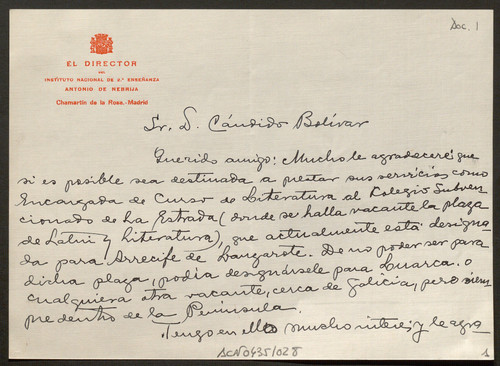 Doc. 1
EL DIRECTOR
DEL
INSTITUTO NACIONAL DE 2.ª ENSEÑANZA
ANTONIO DE NEBRIJA
Chamartín de la Rosa.-Madrid
Sr. D. Cándido Bolívar
Querido amigo: Mucho le agradeceré que
si es posible sea destinada a prestar sus servicios como
Encargada de Curso de Literatura al Colegio Subven
cionado de La Estrada (donde se halla vacante la plaza
de Latín y Literatura), que actualmente está designa
da para Arrecife de Lanzarote. De no poder ser para
dicha plaza, podía designársele para Luarca o
cualquiera otra vacante, cerca de Galicia, pero siem
pre dentro de la Península.
Tengo en ello mucho interés y le agra
ACN0435/028
1